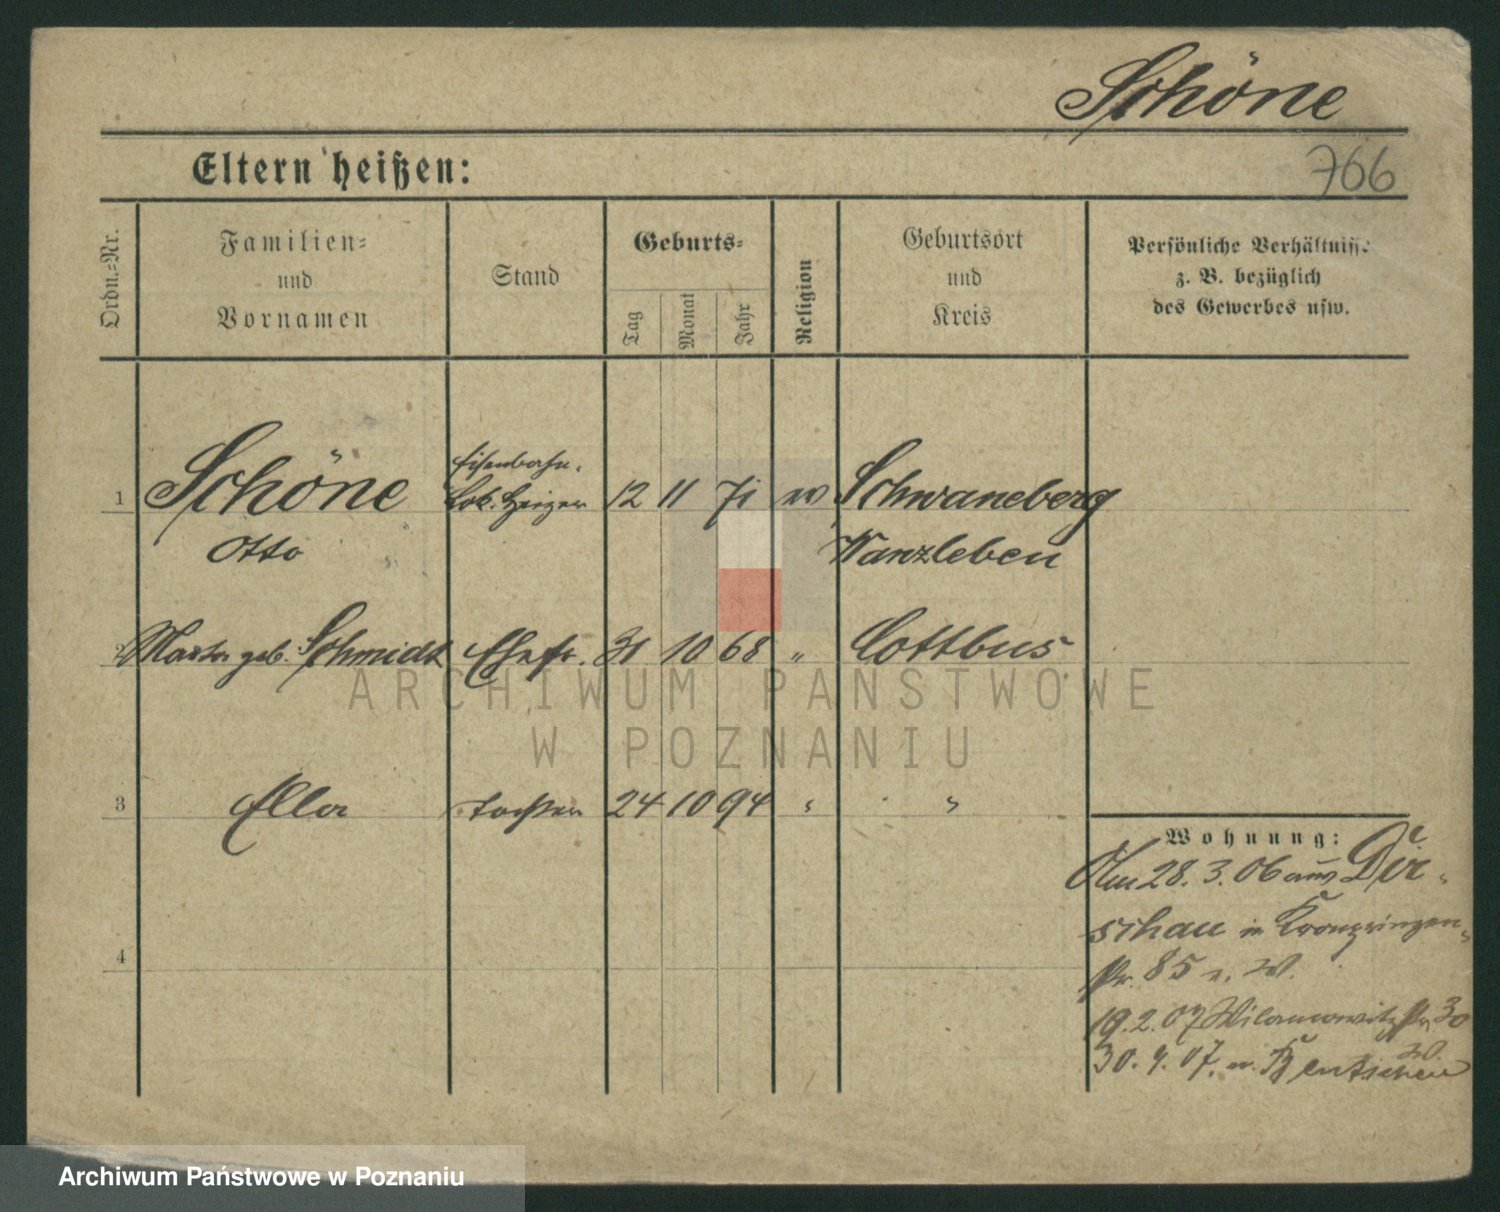 Schöne
Eltern heißen:
766
Ordn.-Nr.
Familien-
und
Vornamen
Stand
Geburts-
Tag
Monat
Jahr
Religion
Geburtsort
und
Kreis
Persönliche Verhältnisse
z. B. bezüglich
des Gewerbes usw.
Eisenbahn-
1 Schöne Lok. Heizer 12 11 71 ev Schwaneberg
Otto Wanzleben
2 geb. Schmidt Ehefr. 31 10 68 " Cottbus
3 Ella Tochter 24 10 94 " "
Wohnung:
Am 28.3.06 aus Dir-
schau in Kronprinzen-
str. 85 W.
4
19.2.07 str 30
W.
30.9.07. n. Bentschen
ARCHIWUM PAŃSTWOWE
W POZNANIU
Archiwum Państwowe w Poznaniu